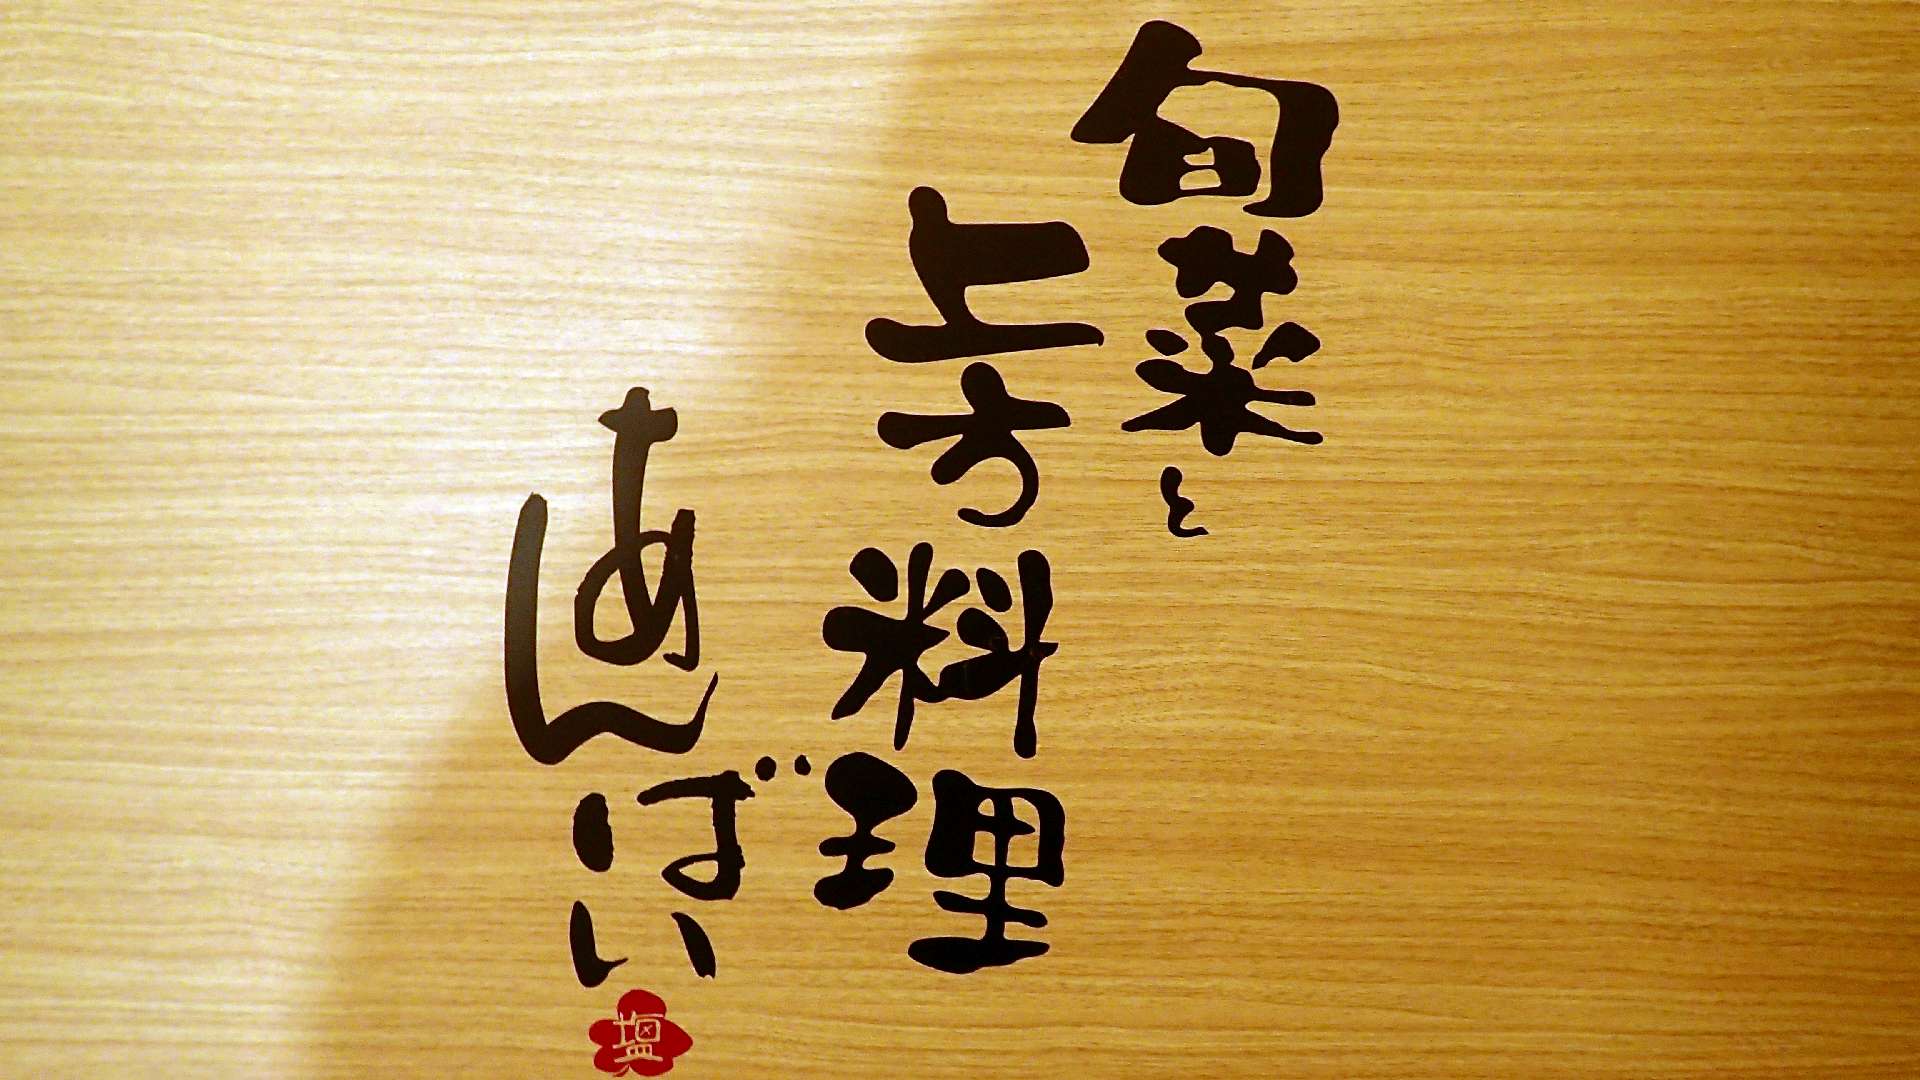 旬菜と
上方料理
あんばい
塩